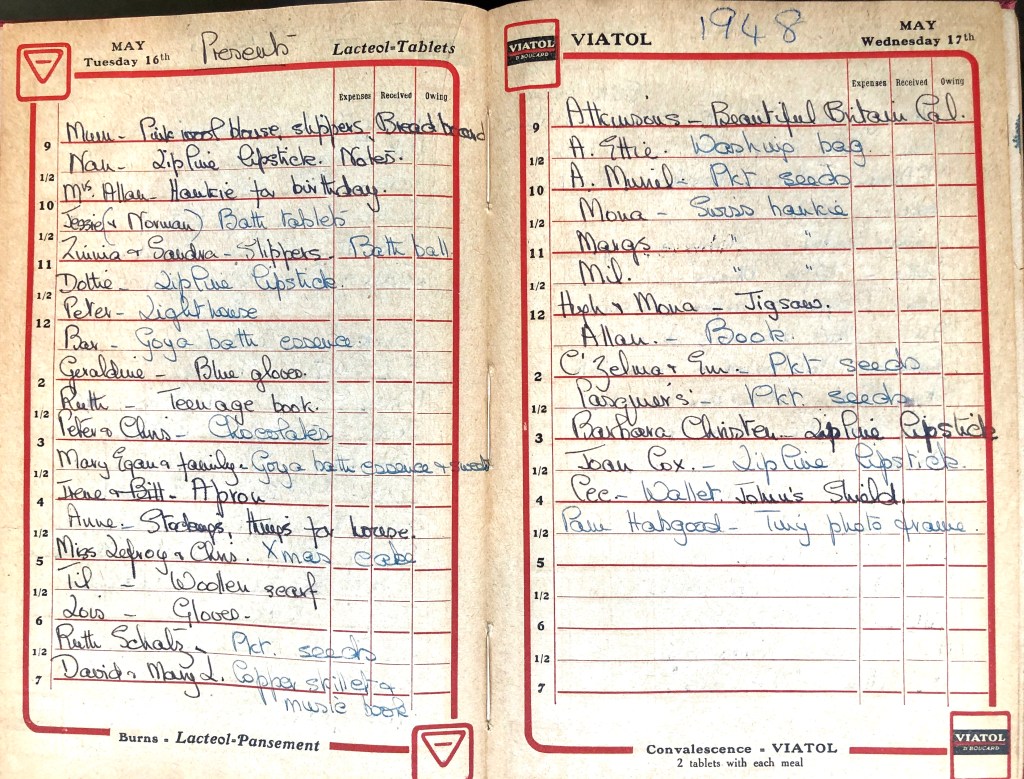 MAY
Tuesday 16th
Presents
Lacteol-Tablets
Expenses Received Owing
Mum - Pink wool blouse, slippers, Bread board
9
Nan - Zip Line lipstick. Notes.
1/2
Mrs. Allan - Hankie for birthday.
10
Jessie (& Norman) Bath tablets
1/2
Zinnia & Sandra - Slippers - Bath ball
11
Dottie - Zip Line lipstick.
1/2
Peter - Lighthouse
12
Bar - Goya bath essence.
Geraldine - Blue gloves.
2
Ruth - Teenage book.
1/2
Peter & Chris - Chocolates
3
Mary Egan & family - Goya bath essence & sweets
1/2
Irene & Bill - Apron
4
Anne - Stockings, things for house.
1/2
Miss Lefroy & Chris. Xmas cake
5
Til - Woollen scarf
1/2
Lois - Gloves -
6
Ruth Schalz - Pkt. seeds
1/2
David & Mary L. Copper skillet &
7
music book
Burns - Lacteol-Pansement
VIATOL
D BOUCARD
VIATOL
1948
MAY
Wednesday 17th
Expenses Received Owing
Atkinsons - Beautiful Britain Cal.
9
A. Ettie. Washing bag.
1/2
A. Muriel - Pkt seeds
10
Mona - Swiss hankie
1/2
Margs " "
11
Mil. " "
1/2
Hugh & Mona - Jigsaw.
12
Allan. - Book.
C' Zelma & Em. - Pkt seeds
2
Pasquiers' - Pkt. seeds
1/2
Barbara Christen - Zip Line lipstick
3
Joan Cox. - Zip Line lipstick.
1/2
Cec - Wallet. John's Shield.
4
Pam Habgood - Tiny photo frame
1/2
5
1/2
6
1/2
7
Convalescence - VIATOL
2 tablets with each meal
VIATOL
D BOUCARD